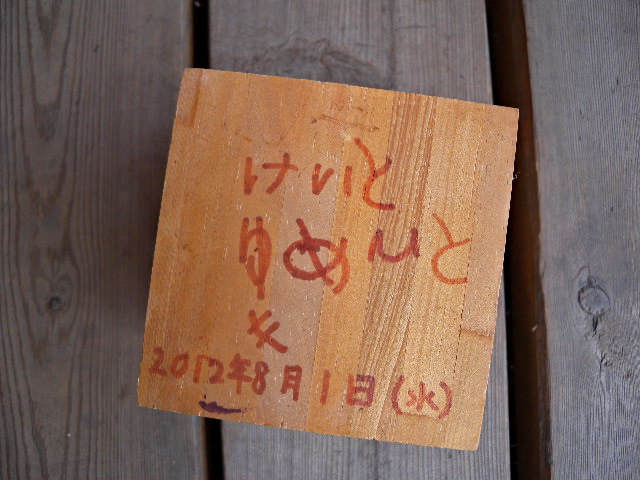 けいと
ゆめひと
2012年8月1日(水)